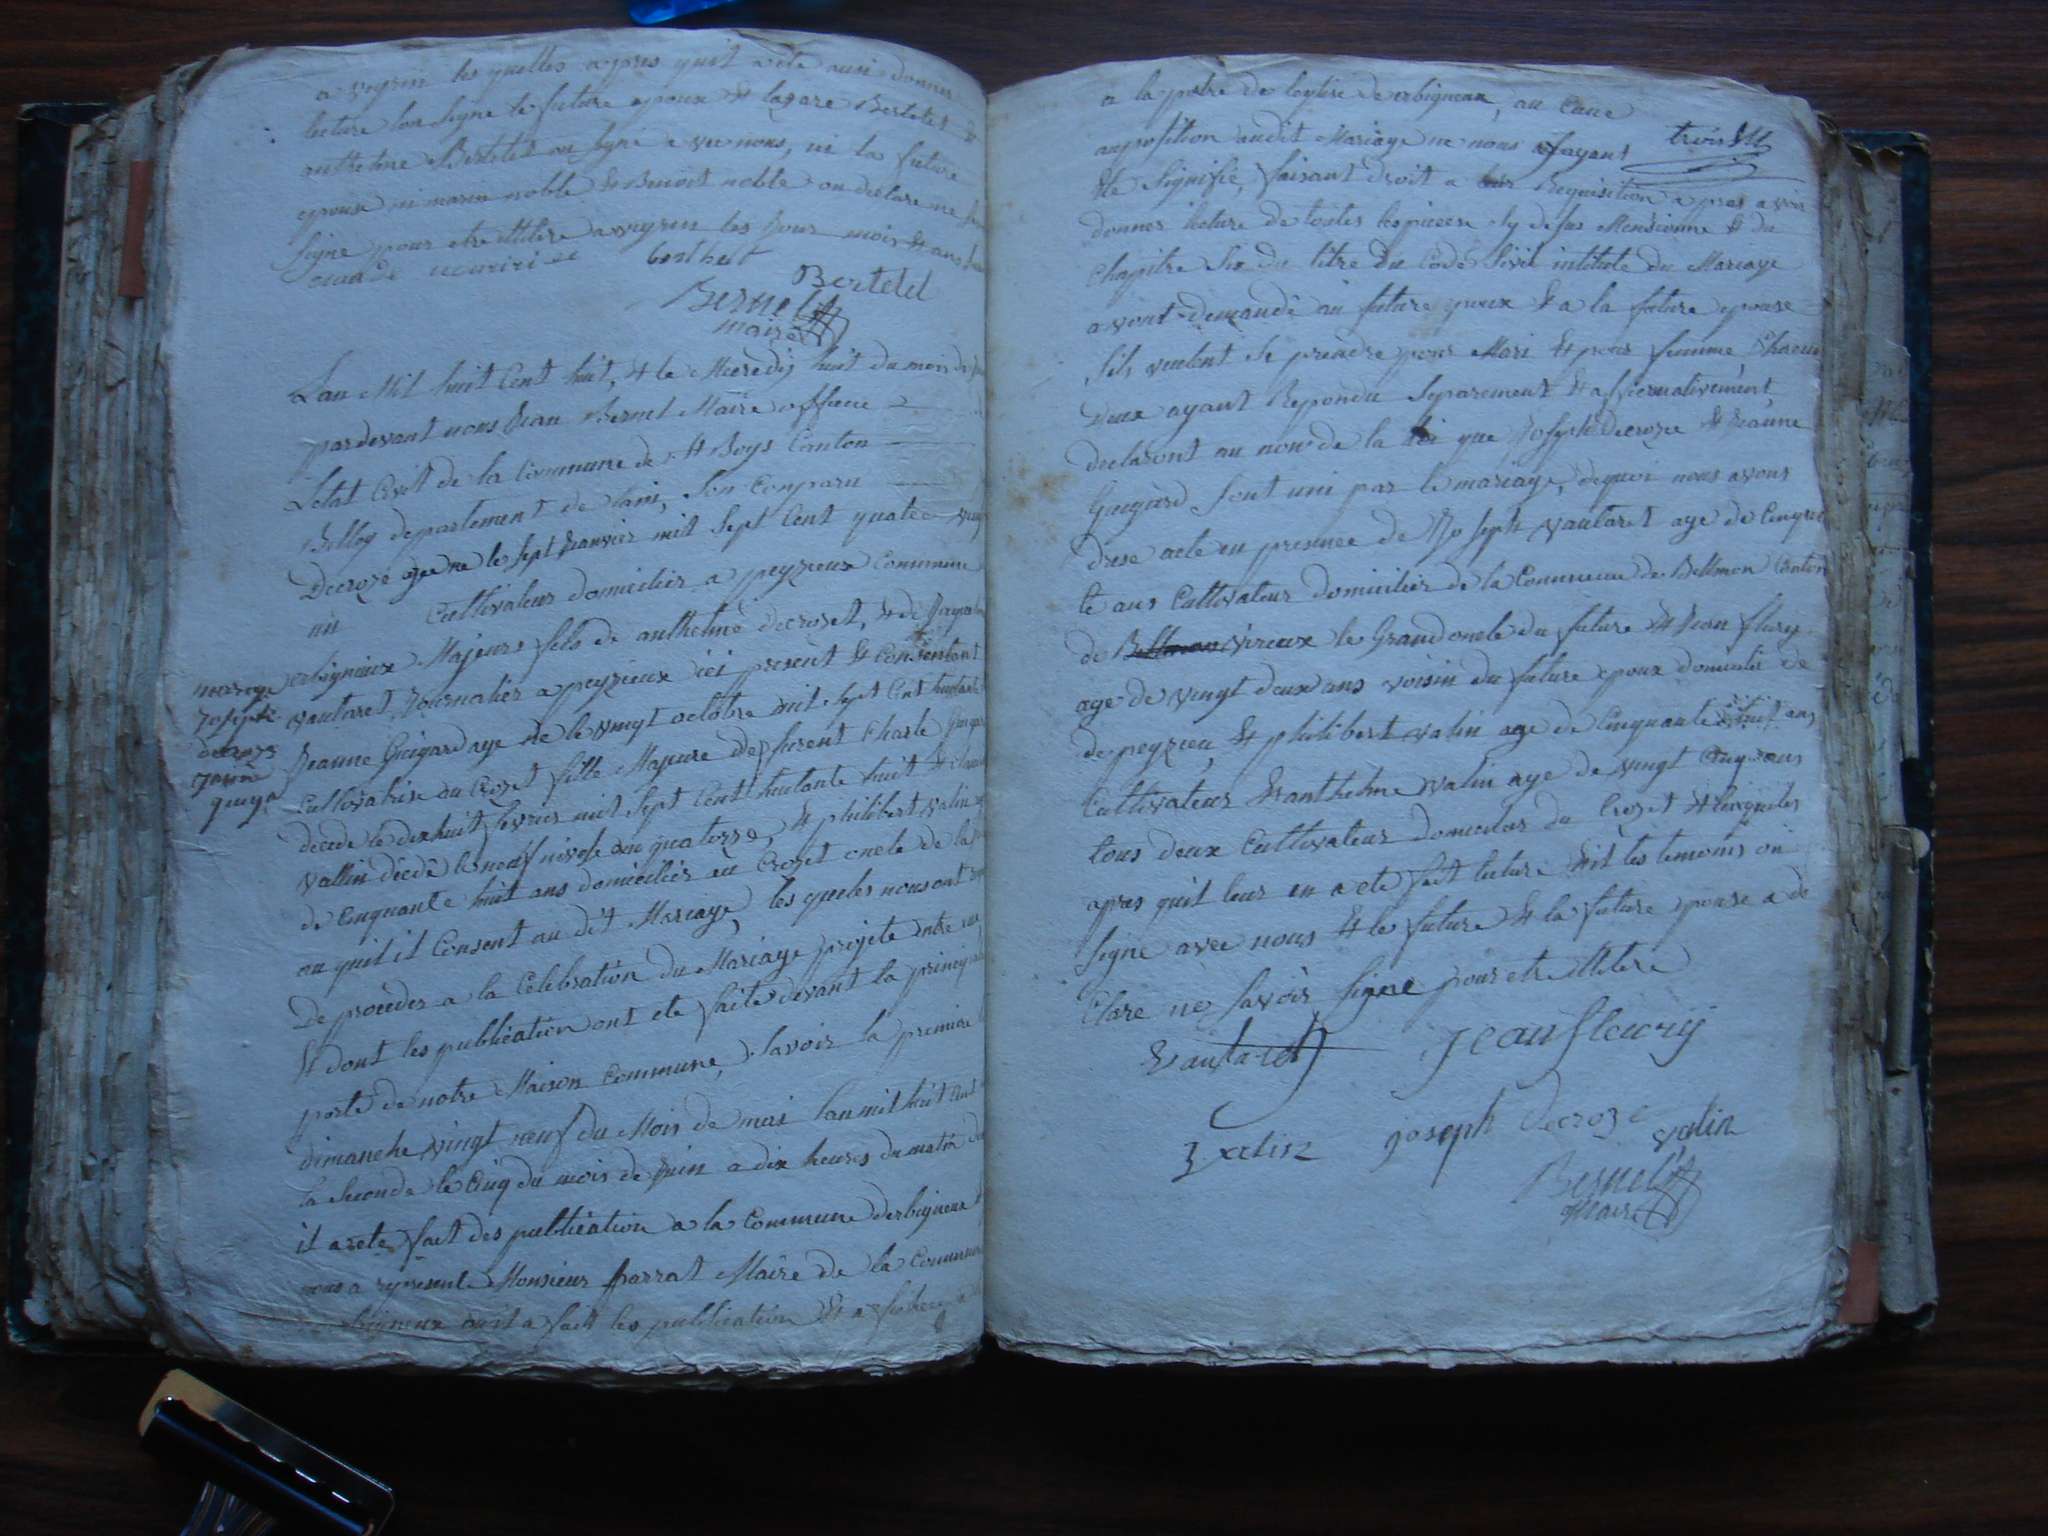 a veyrin les quelles apres quil a ete ausi donner
lecture lon signe le future epoux & lazare Bertelet &
anthelme Bertelet on signé avec nous, ni la future
epouse ni marin noble & Benoit noble on declare ne
signe pour etre illitere a veyrin les jours mois & ans
berthet
Bertelet
Bernel
maire
Lan Mil huit Cent huit, & le Mecredij huit du mois de
pardevant nous Jean Bernel Maire officie
Letat Civil de la Commune de St Boys Canton
Belley departement de lain, son Comparu
Decroze age ne le sept Janvier mil sept Cent quatre vingt
un Cultivateur domicilier a peyzieux Commune
mariage
joseph
decroze
janne
guiga
arbignieux Majeure fils de anthelme decrozet, & de
vautaret, Journalier a peyzieux ici present & Consentant
Jeanne Guigard age ne le vingt octobre mil sept Cent huitante
Cultivatrise au Crozet fille Majeure de furent Charle Guigar
decede le dix huit fevrier mil sept Cent huitante huit &
vallin décédé le neuf nivose an quatorze, & philibert valin
de Cinquante huit ans domicilier au Crozet oncle de la
au quil il Consent au dit Mariage, les queles nous ont
De proceder a la Celebration du Mariage projete entre eux
& dont les publication ont ete faite devant la principale
porte de notre Maison Commune, savoir la premiere
dimanche vingt neuf du Mois de mai lan mil huit Cent
la seconde le Cinq du mois de Juin a dix heures du matin
il a ete fait des publication a la Commune darbigneux
nous a represente Monsieur parrat Maire de la Commune
quil a fait les publication & a
a la porte de leglise de arbigneux, au Cune
trois
opposition audit Mariage ne nous ayant
ete Signifie, faisant droit a leur Requisition apres avoir
donner lecture de toutes les pieces Cy desus Mensionne & du
Chapitre six du titre du Code Sivil intitute du Mariage
avont demandé au future epoux & a la future epouse
sils veulent se prendre pour Mari & pour femme Chacun
deux ayant Repondu separement & affirmativement
declaront au nom de la loi que Joseph Decroze & Jeanne
Guigard sont uni par le mariage, de quoi nous avons
drese acte en presence de Joseph vautaret age de Cinquen
te ans Cultivateur domicilier de la Commune de Bellmon Canton
de Bellmon virieux le Grand oncle du future & Jean flury
age de vingt deux ans voisin du future epoux domicilie de
de peyzieu, & philibert valin age de Cinquante huit ans
Cultivateur & anthelme valin age de vingt Cinq ans
tous deux Cultivateur domicilier du Crozet & lesqueles
apres quil leur en a ete fait lecture les temoins on
signe avec nous & le future & la future epouse a de
Clare ne savoir signe pour etre illitere
Vautaret
jean fleury
valin
joseph decroze
valin
Bernel
Maire